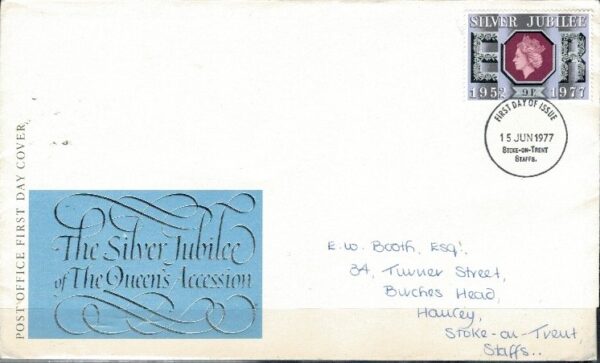 SILVER JUBILEE
E R
1952 9P 1977
FIRST DAY OF ISSUE
15 JUN 1977
STOKE-ON-TRENT
STAFFS.
POST OFFICE FIRST DAY COVER
The Silver Jubilee
of The Queen's Accession
E.W. Booth, Esqr.
34, Turner Street,
Birches Head,
Hanley,
Stoke-on-Trent,
Staffs..